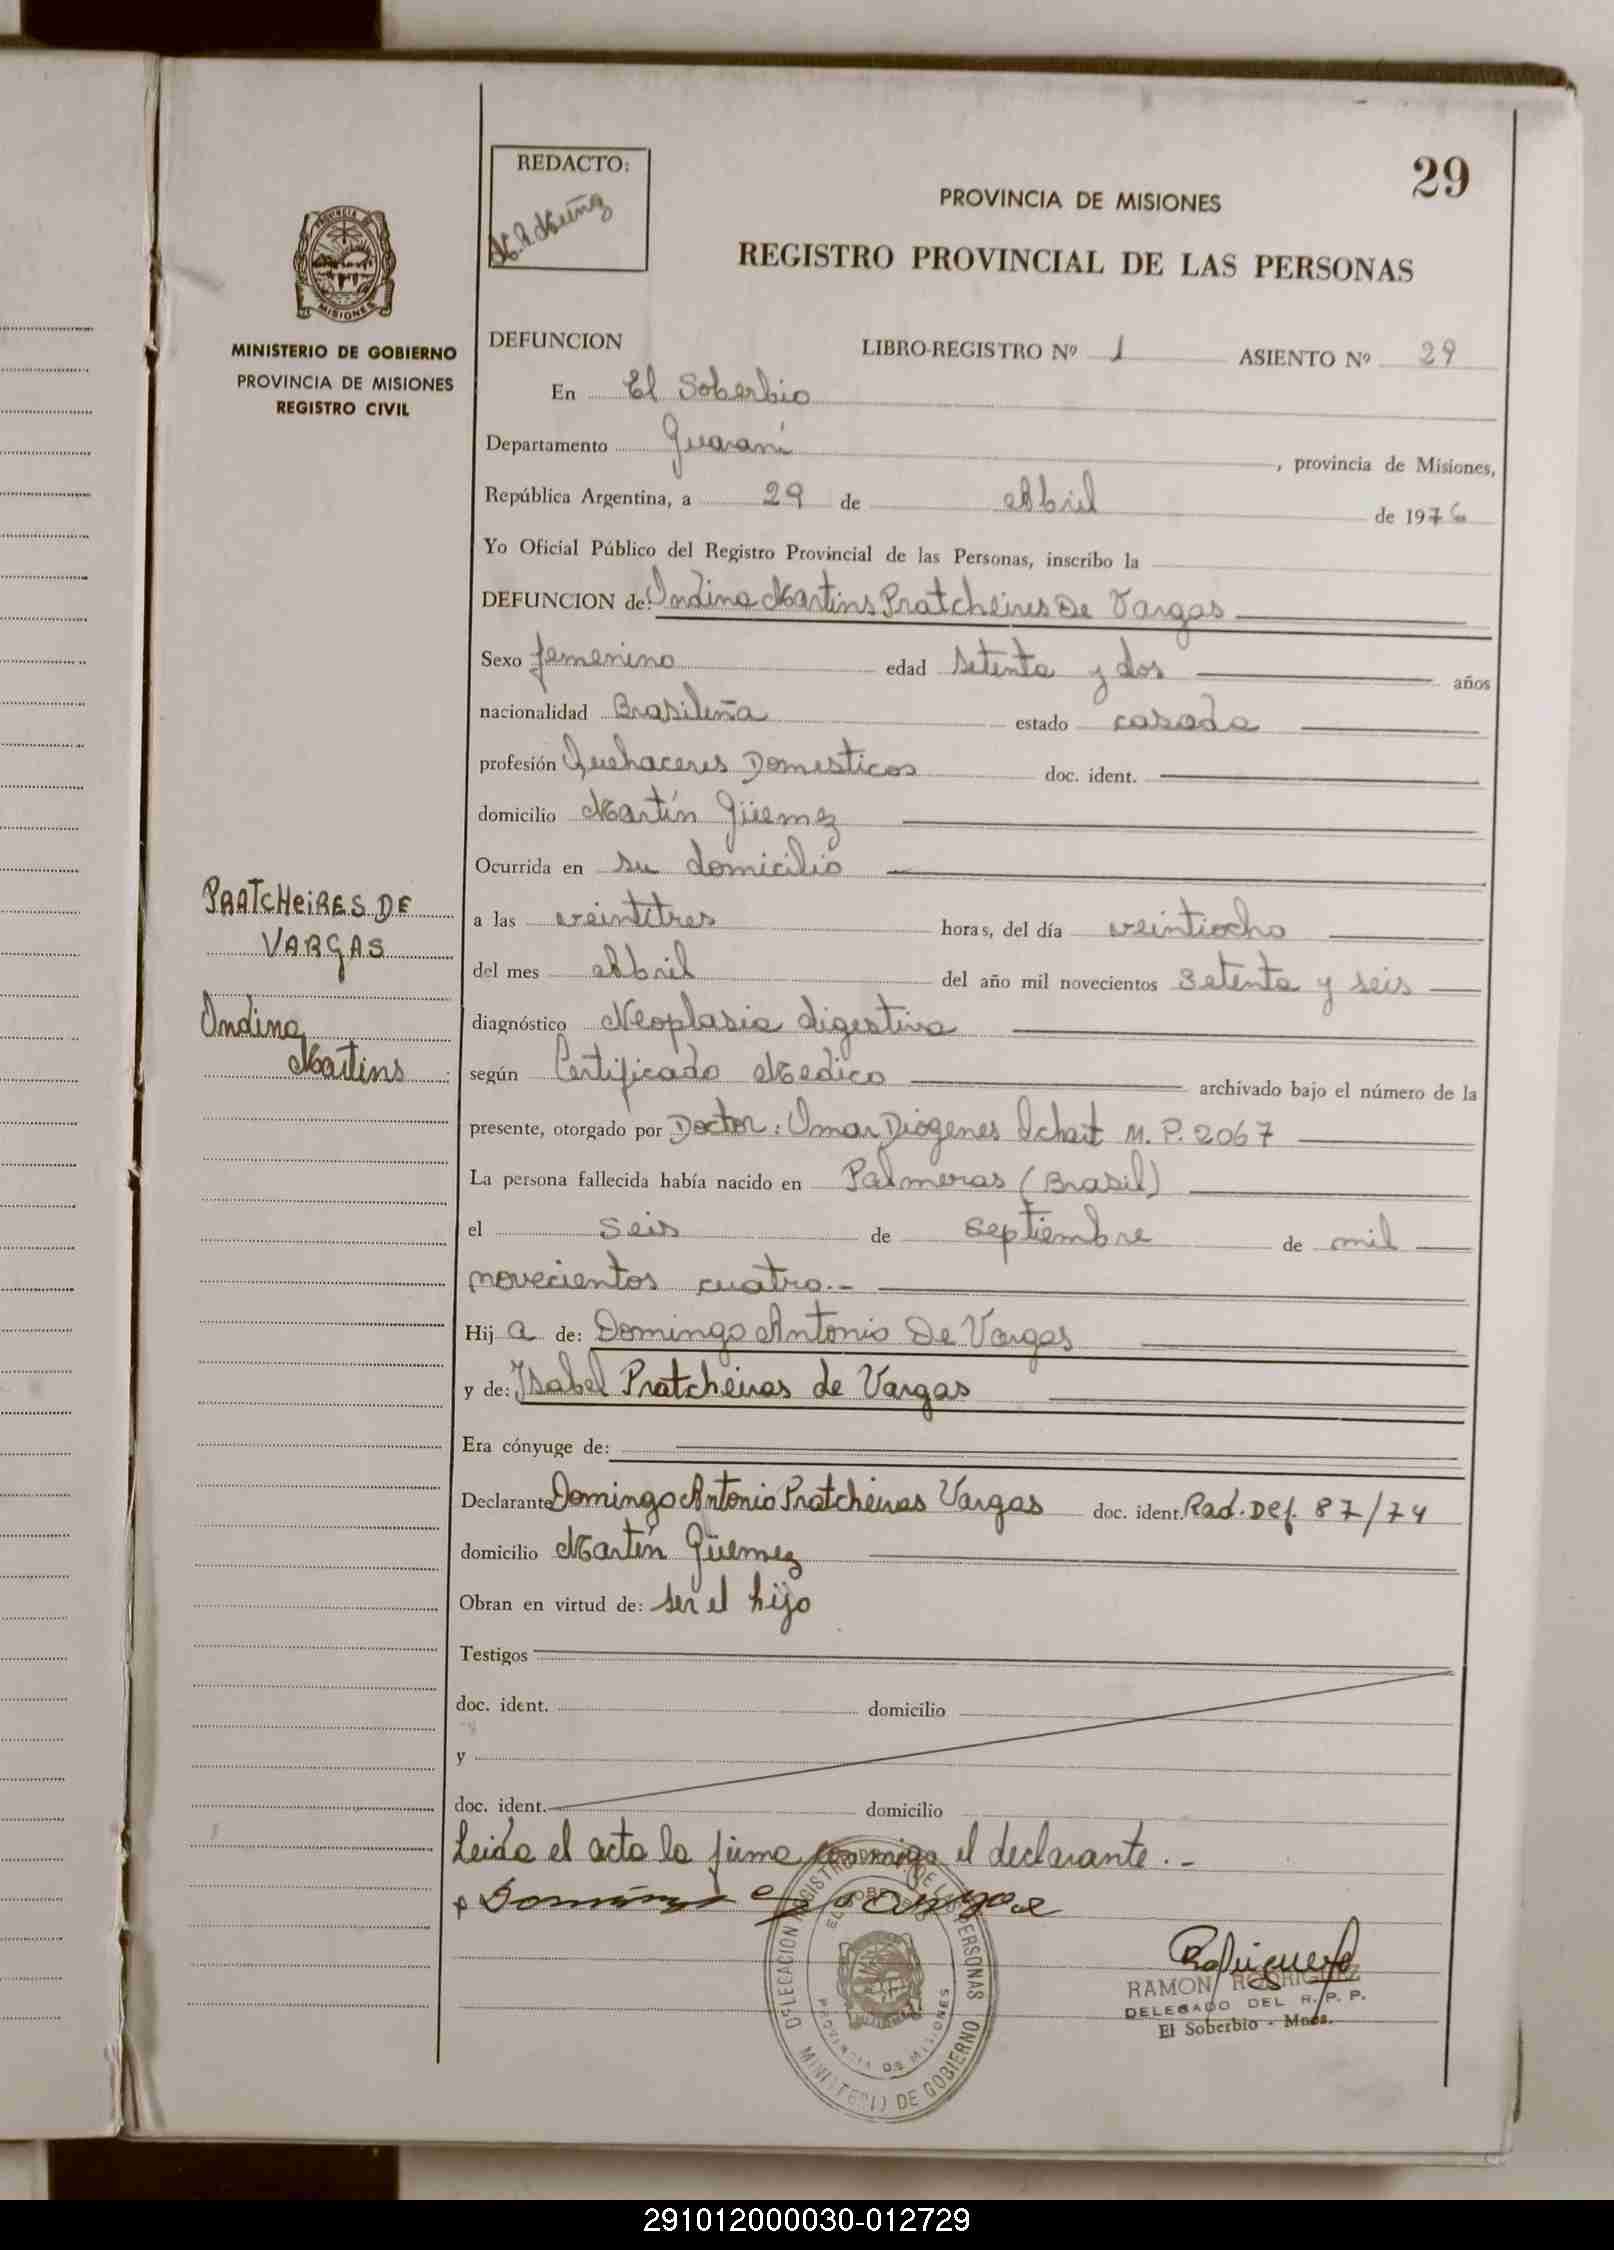 29
REDACTO:
PROVINCIA DE MISIONES
REGISTRO PROVINCIAL DE LAS PERSONAS
MISIONES
MINISTERIO DE GOBIERNO
PROVINCIA DE MISIONES
REGISTRO CIVIL
DEFUNCION LIBRO-REGISTRO Nº 1 ASIENTO Nº 29
En El Soberbio
Departamento Guaraní, provincia de Misiones,
República Argentina, a 29 de Abril de 1976
Yo Oficial Público del Registro Provincial de las Personas, inscribo la
DEFUNCION de: Ondina Martins Pratcheires De Vargas
Sexo femenino edad setenta y dos años
nacionalidad Brasileña estado casada
profesión Quehaceres Domesticos doc. ident.
domicilio Martín Güemez
Ocurrida en su domicilio
PRATCHEIRES DE
VARGAS
Ondina
Martins
a las veintitres horas, del día veintiocho
del mes Abril del año mil novecientos Setenta y seis
diagnóstico Neoplasia digestiva
según Certificado Medico archivado bajo el número de la
presente, otorgado por Doctor: Omar Diógenes Ichait M.P. 2067
La persona fallecida había nacido en Palmeras (Brasil)
el seis de septiembre de mil
novecientos cuatro.-
Hij a de: Domingo Antonio De Vargas
y de: Isabel Pratcheiras de Vargas
Era cónyuge de:
Declarante Domingo Antonio Pratcheiras Vargas doc. ident. Rad. Def. 87/74
domicilio Martín Güemez
Obran en virtud de: ser el hijo
Testigos
doc. ident. domicilio
y
doc. ident. domicilio
Leida el acta la firma conmigo el declarante.-
DELEGACION REGISTRO DE LAS PERSONAS
EL SOBERBIO
PROVINCIA DE MISIONES
MINISTERIO DE GOBIERNO
RAMON RODRIGUEZ
DELEGADO DEL R. P. P.
El Soberbio - Mnes.
291012000030-012729